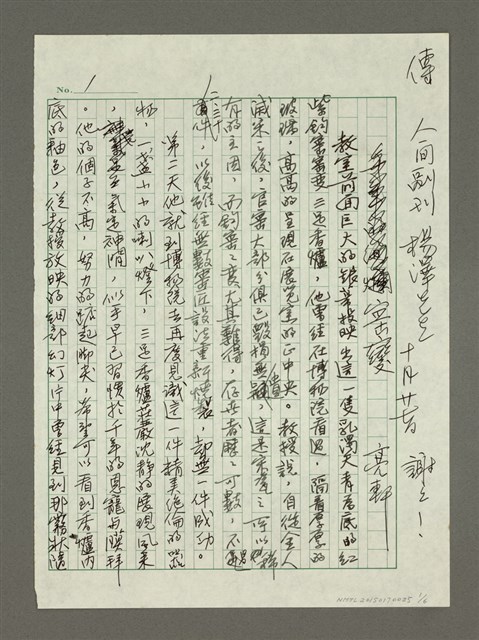 傳 人間副刊 楊澤先生 十月廿 謝謝！
No. 1
窯變
亮軒
教室前面巨大的銀幕投映出這一隻乳濁天青為底的紅
紫鈞窯窯變三足香爐，他曾經在博物院看過，隔着厚厚的
玻璃，高高的呈現在展覽室的正中央。教授說，自從金人
滅宋之後，官窯大部分俱已毀損無遺，這是宋瓷之所以稀
有的主因，而鈞窯之變尤其難得，存世者歷歷可數，不過
二、三十
件，以後雖經無數窯匠設法重新燒製，卻無一件成功。
第二天他就到博物院去再度見識這一件精美絕倫的瓷
物，一盞小小的喇叭燈下，三足香爐莊嚴沈靜的展現風采
，神定氣閒，似乎早已習慣於千年的恩寵與膜拜
。他的個子不高，努力的踮起脚尖，希望可以看到香爐內
底的釉色，從教授放映的細部幻灯片中曾經見到那霧狀隱
NMTL20150170025 1/6